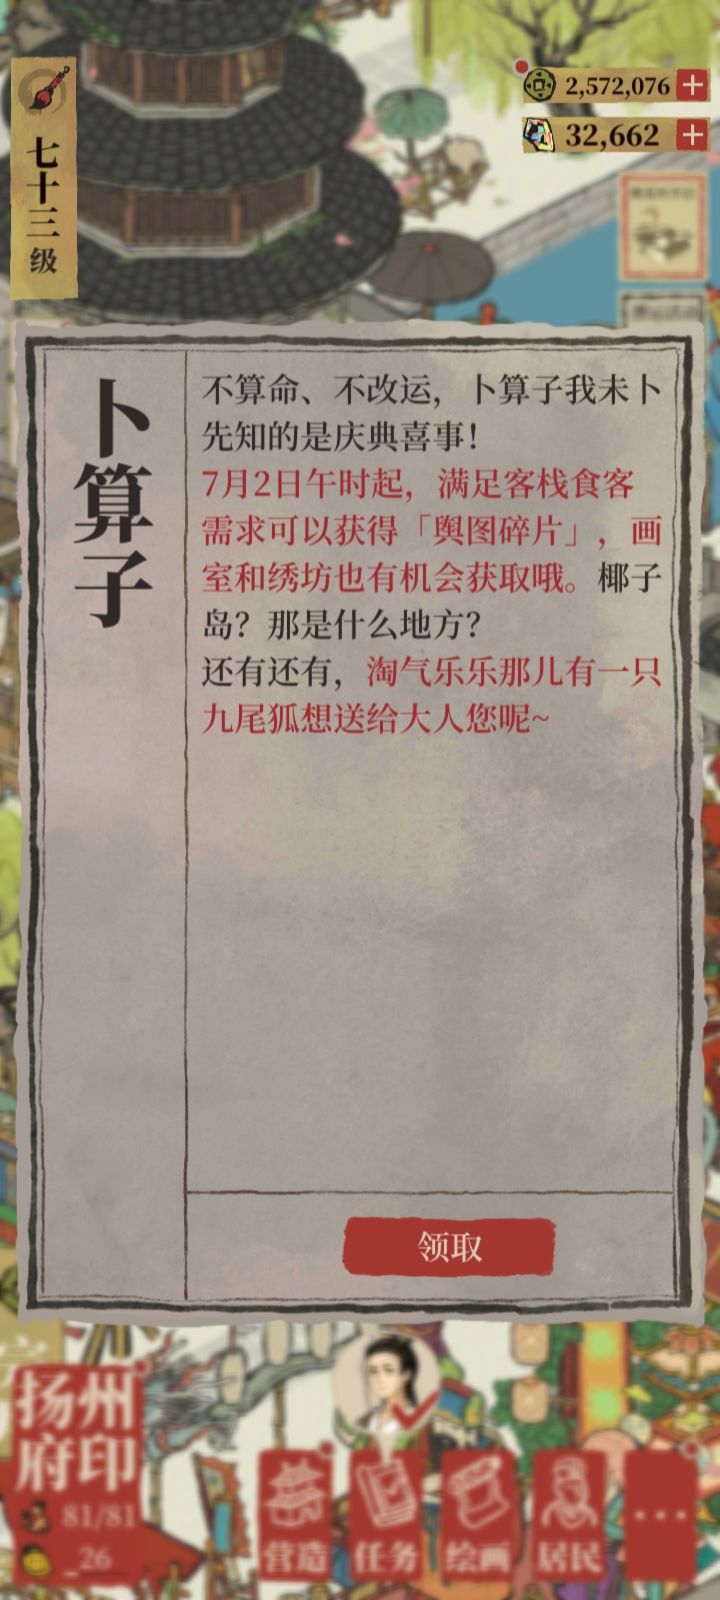 七十三级
2,572,076
32,662
卜算子
不算命、不改运，卜算子我未卜
先知的是庆典喜事！
7月2日午时起，满足客栈食客
需求可以获得「舆图碎片」，画
室和绣坊也有机会获取哦。椰子
岛？那是什么地方？
还有还有，淘气乐乐那儿有一只
九尾狐想送给大人您呢~
领取
扬州
府印
81/81
26
营造
任务
绘画
居民